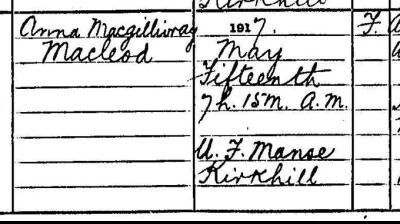 Kirkhill
Anna Macgillivray 1917. F.
Macleod May
Fifteenth
7h. 15m. A.M.
U. F. Manse
Kirkhill